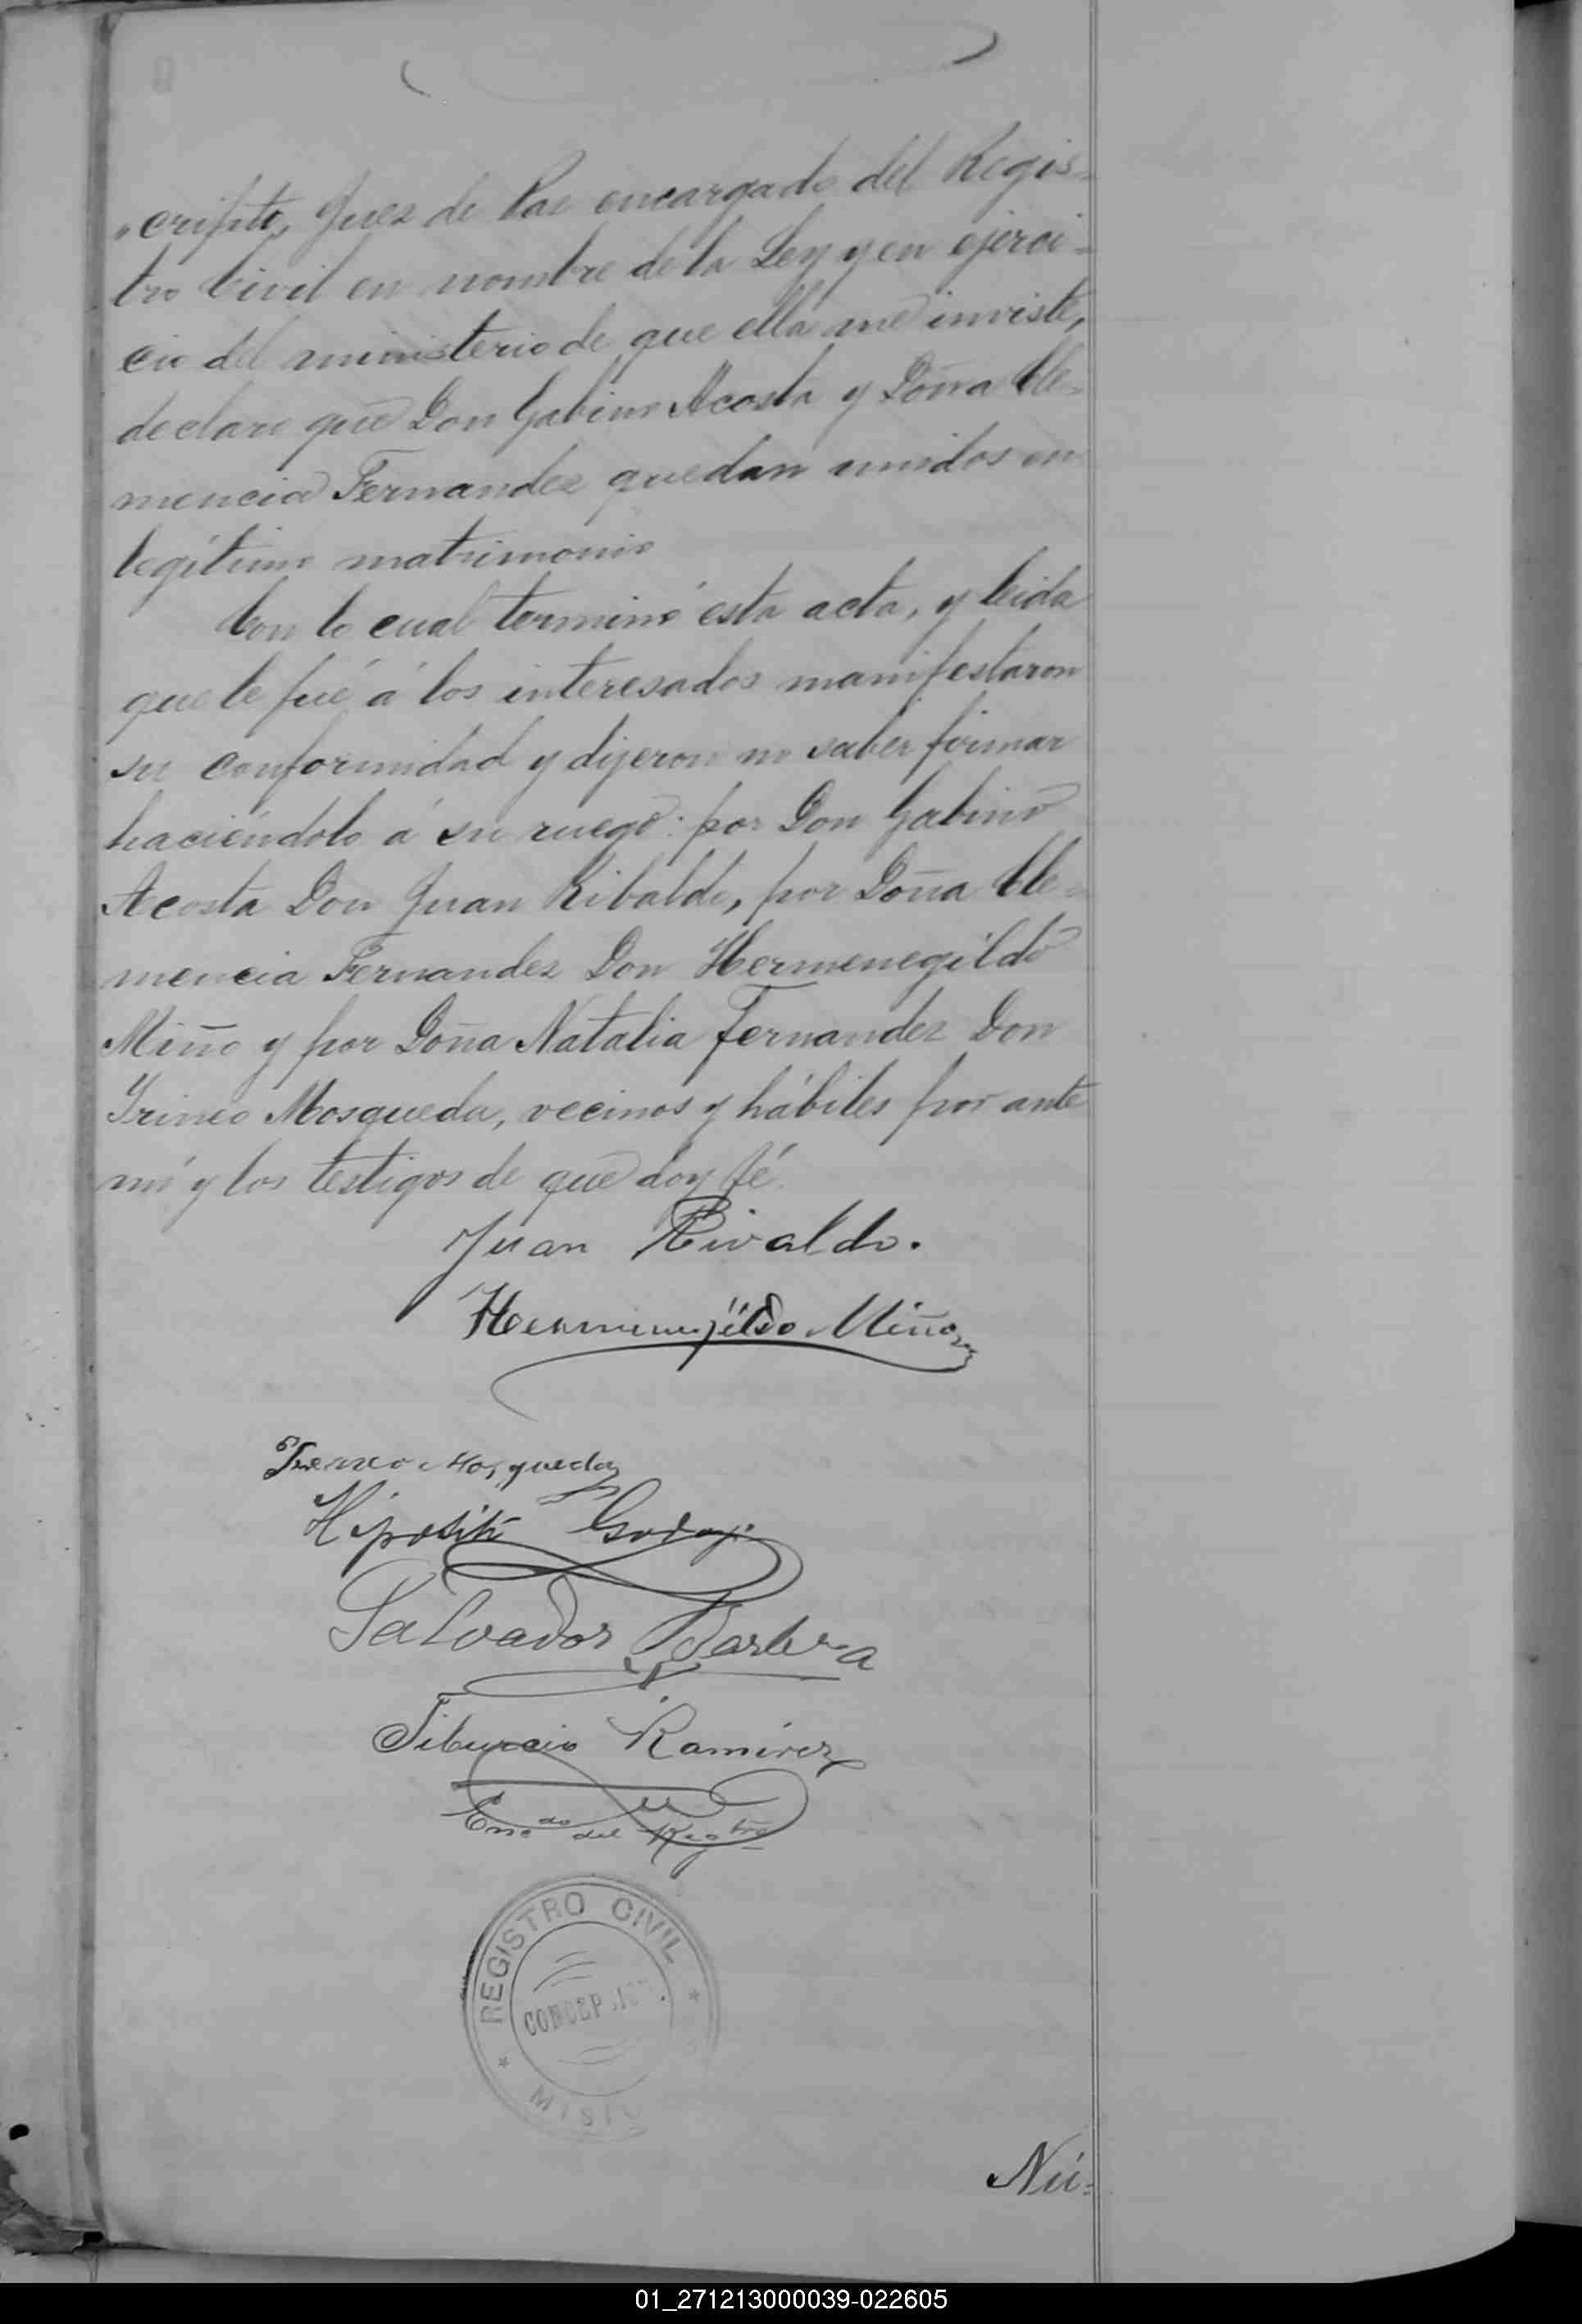 cripto, Juez de Paz encargado del Regis-
tro Civil en nombre de la Ley y en ejerci-
cio del ministerio de que ella me inviste,
declaro que Don Gabino Acosta y Doña Cle-
mencia Fernandez quedan unidos en
legítimo matrimonio
Con lo cual terminó esta acta, y leida
que le fué á los interesados manifestaron
su conformidad y dijeron no saber firmar
haciéndolo á su ruego: por Don Gabino
Acosta Don Juan Ribaldo, por Doña Cle-
mencia Fernandez Don Hermenegildo
Miño y por Doña Natalia Fernandez Don
Irineo Mosqueda, vecinos y hábiles por ante
mí y los testigos de que doy fé.
Juan Rivaldo.
Hermenejildo Miño
Ireneo Mosqueda
Hipolito Godoy
Salvador Barbera
Tiburcio Ramirez
Encdo del Regtro
REGISTRO CIVIL
Nú-
01_271213000039-022605